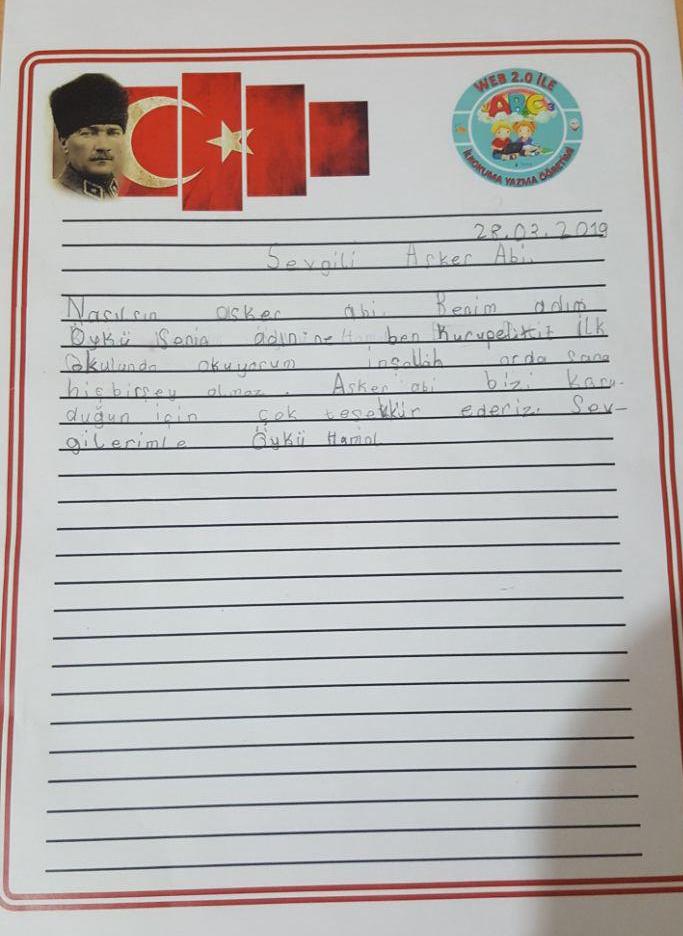 WEB 2.0 İLE
ABC
İLKOKUMA YAZMA ÖĞRETİMİ
28.02.2019
Sevgili Asker Abi.
Nasılsın asker abi. Benim adım
Öykü Senin adın ne ben Kurupelit İlk
Okulunda okuyorum inşallah orda sana
hiçbirşey olmaz. Asker abi bizi koru-
duğun için çok teşekkür ederiz. Sev-
gilerimle Öykü